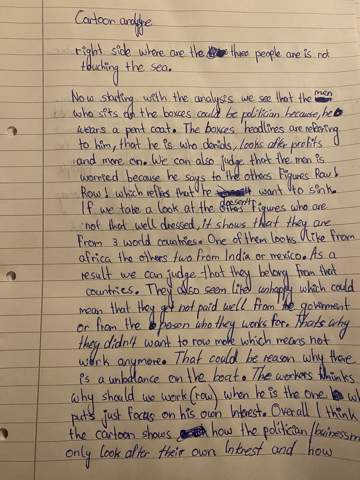 Cartoon analyse
right side where are the three people are is not
touching the sea.
Now starting with the analysis we see that the men
who sits on the boxes could be politician because, he
wears a pent coat. The boxces headlines are refering
to him, that he is who decids, looks after profits
and more on. We can also judge that the men is
worried because he says to the others Figures Row!
Row! which reflies that he doesn't want to sink.
If we take a look at the others Figures who are
not that well dressed, It shows that they are
From 3 world countries. One of them looks like from
africa the others two from India or mexico. As a
result we can judge that they belong from that
countries. They also seem like unhappy which could
mean that they get not paid well from the goverment
or from the person who they works for. Thats why
they didn't want to row more which means not
work anymore. That could be reason why there
is a unbalance on the boat. The workers thinks
why should we work (row) when he is the one
puts just focus on his own Intrest. Overall I think
the cartoon shows how the politician/
only look after their own Intrest and how